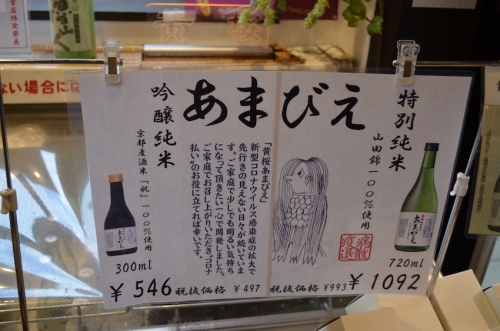 あまびえ
特別純米
山田錦一〇〇%使用
720ml
¥1092
税抜価格 ¥993
「黄桜あまびえ」
新型コロナウイルス感染症の拡大で
先行きの見えない日々が続いていま
す。ご家庭で少しでも明るい気持ち
になって頂きたい一心で開発しました。
ご家庭でお召し上がりいただき、“コロナ
払い”のお役に立てれば幸いです。
吟醸純米
京都産酒米「祝」一〇〇%使用
300ml
¥546
税抜価格 ¥497
あまびえ
ない場合には